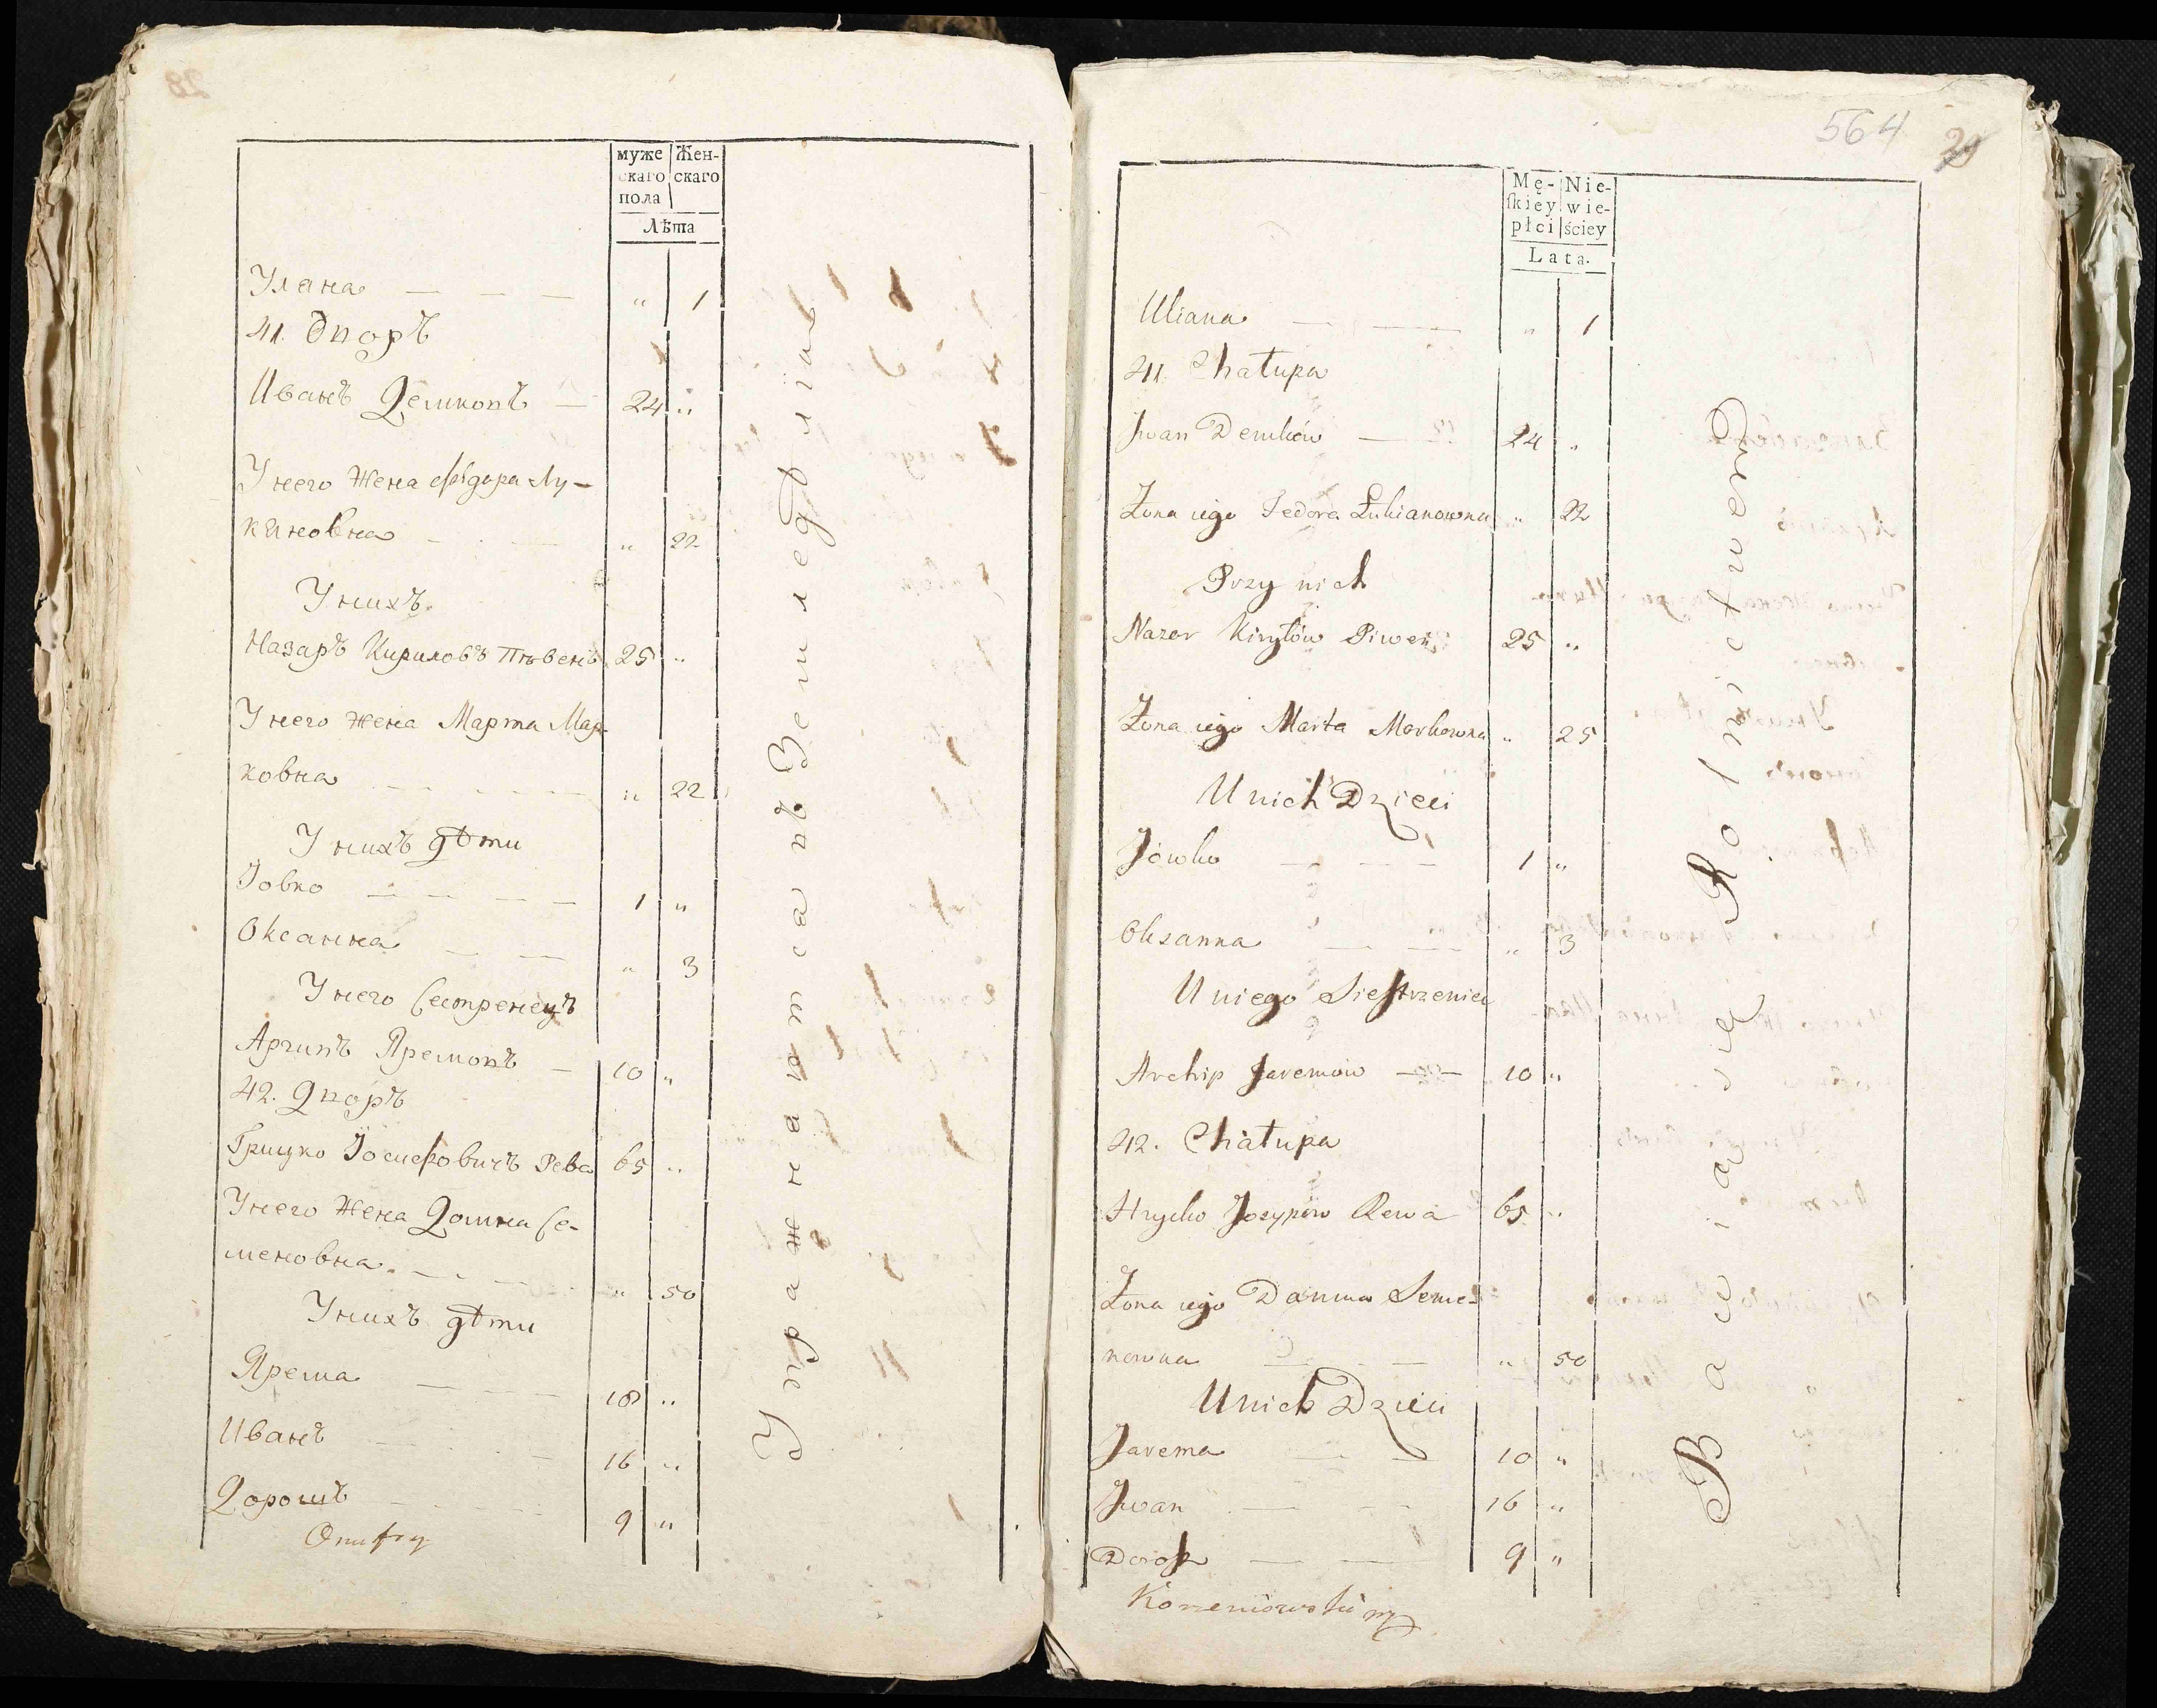 28
муже Жен-
скаго скаго
пола
Лѣта
Улана — — — " 1
41. Дворъ
Иванъ Демковъ — 24 "
У него жена Ѳедора Лу-
кяновна — — " 22
У нихъ
Назаръ Кириловъ Пѣвенъ 25 "
У него жена Марта Мар-
ковна — — — " 22
У нихъ дѣти
Іовко — — — — 1 "
Оксанна — — " 3
У него Сестренецъ
Архипъ Яремовъ — 10 "
42. Дворъ
Грицко Іосифовичъ Рева 65 "
У него жена Домна Се-
меновна — — " 50
У нихъ дѣти
Ярема — — — 18 "
Иванъ — — — 16 "
Дорошъ — — — 9 "
Onufry
Упражняются въ Земледѣліи
564 29
Mę- Nie-
skiey wie-
płci ściey
Lata.
Uliana — — — " 1
41. Chałupa
Jwan Demków — 24 "
Żona iego Fedora Łukianowna " 22
Przy nich
Nazar Kiryłów Piweń 25 "
Żona iego Marta Markowna " 25
U nich Dzieci
Jówko — — — 1 "
Oksanna — — " 3
U niego Siestrzeniec
Archip Jaremów — — 10 "
42. Chałupa
Hryćko Jozypów Rewa 65 "
Żona iego Domna Seme-
nowna — — — " 50
U nich Dzieci
Jarema — — 10 "
Jwan — — 16 "
Dorosz — — 9 "
Korzeniowski mp
Bawią się Rolnictwem